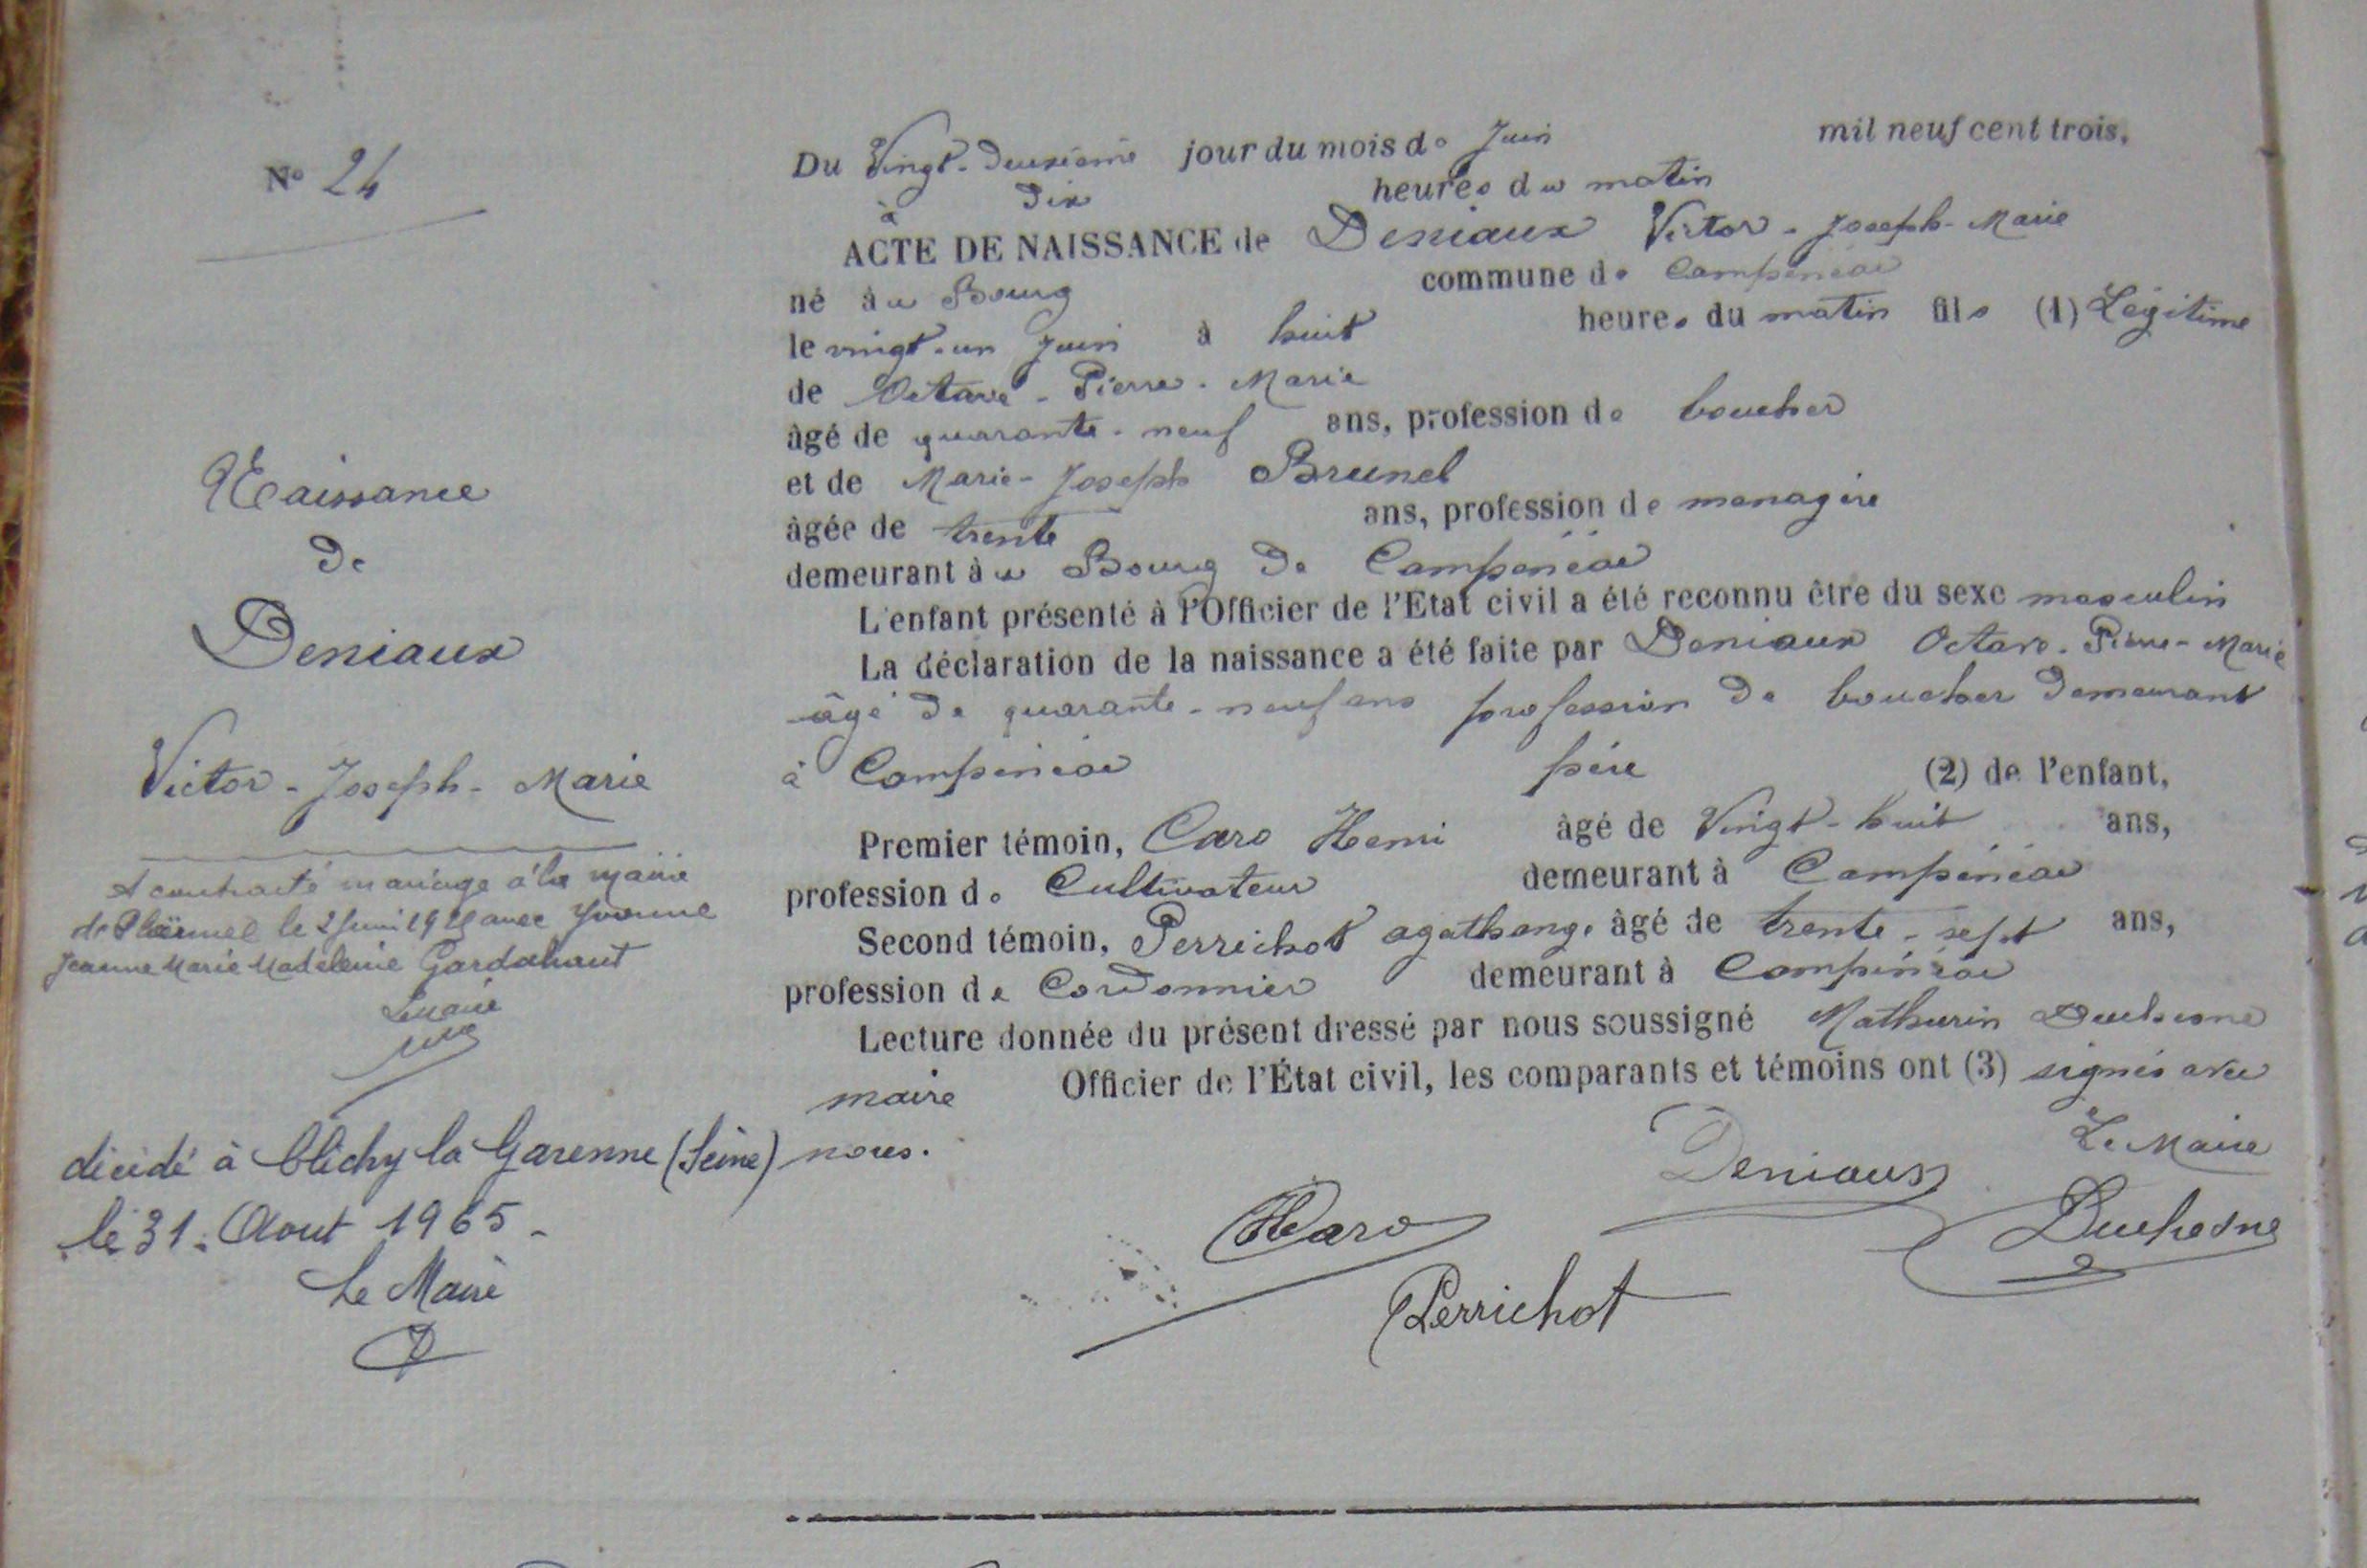 N° 24
Naissance
de
Deniaux
Victor - Joseph - Marie
A contracté mariage à la mairie
de Ploërmel le 2 Juin 19 avec Yvonne
Jeanne Marie Madeleine Gardahaut
Le maire
décédé à Clichy la Garenne (Seine)
le 31 Aout 1965 -
Le Maire
Du Vingt-deuxième jour du mois de Juin mil neuf cent trois,
à dix heures du matin
ACTE DE NAISSANCE de Deniaux Victor - Joseph - Marie
né au Bourg commune de Campénéac
le vingt-un Juin à huit heures du matin fils (1) Légitime
de Octave - Pierre - Marie
âgé de quarante-neuf ans, profession de boucher
et de Marie-Joseph Brunel
âgée de trente ans, profession de menagère
demeurant au Bourg de Campénéac
L'enfant présenté à l'Officier de l'Etat civil a été reconnu être du sexe masculin
La déclaration de la naissance a été faite par Deniaux Octave - Pierre - Marie
âgé de quarante-neuf ans profession de boucher demeurant
à Campénéac père (2) de l'enfant,
Premier témoin, Caro Henri âgé de Vingt-huit ans,
profession de Cultivateur demeurant à Campénéac
Second témoin, Perrichot agathange âgé de trente-sept ans,
profession de Cordonnier demeurant à Campénéac
Lecture donnée du présent dressé par nous soussigné Mathurin Duchesne
maire Officier de l'État civil, les comparants et témoins ont (3) signés avec
nous.
Deniaux Le Maire
HCaro Duchesne
Perrichot